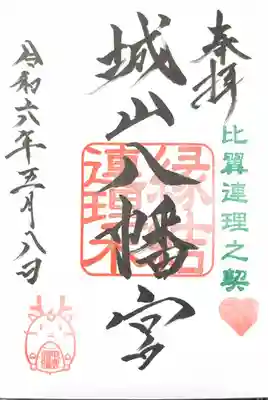 奉拝
比翼連理之契
城山八幡宮
縁結
連理木
令和六年三月八日